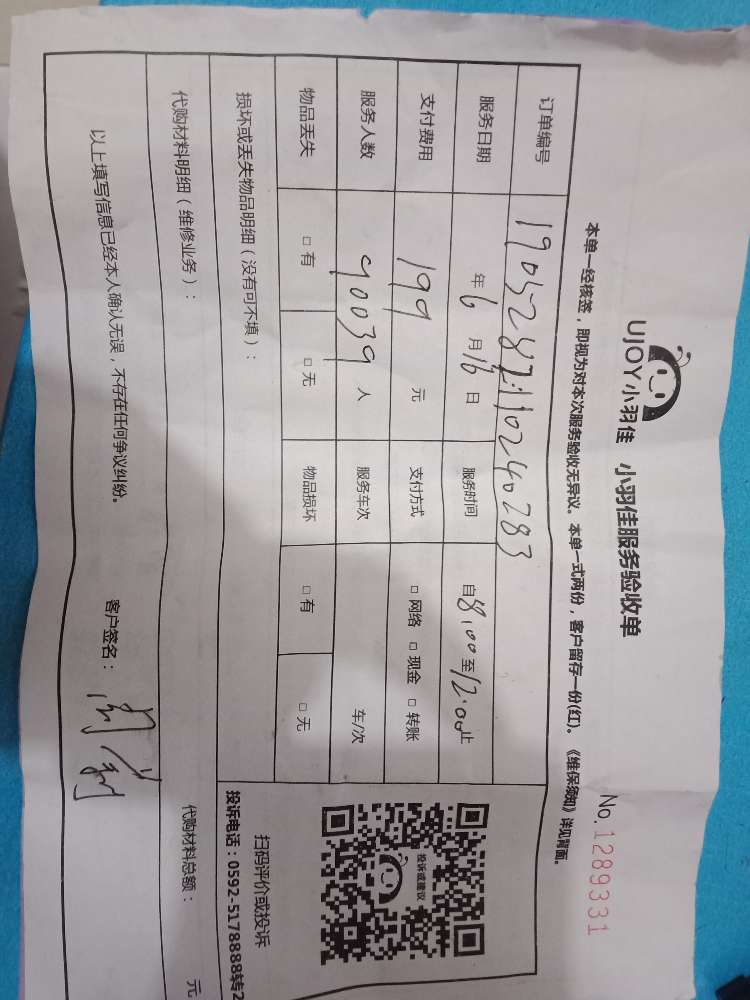 UJOY小羽佳 小羽佳服务验收单
No.1289331
本单一经核签，即视为对本次服务验收无异议。本单一式两份，客户留存一份(红)。《维保须知》详见背面。
订单编号
服务日期 年 6 月 16 日 服务时间 自 8:00 至 12:00 止
支付费用 199 元 支付方式 □ 网络 □ 现金 □ 转账
服务人数 90039 人 服务车次 车/次
物品丢失 □ 有 □ 无 物品损坏 □ 有 □ 无
损坏或丢失物品明细（没有可不填）：
投诉或建议
扫码评价或投诉
投诉电话：0592-5178888转2
代购材料明细（维修业务）： 代购材料总额： 元
以上填写信息已经本人确认无误，不存在任何争议纠纷。 客户签名：